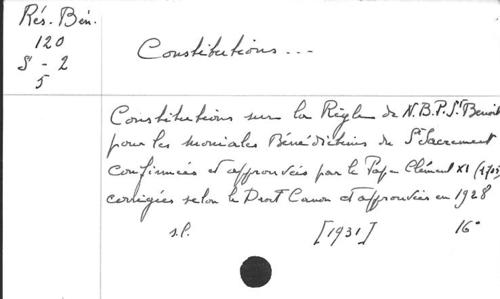 Rés. Bén.
120
S - 2
5
Constitutions...
Constitutions sur la Règle de N.B.P.St. Benoit
pour les moniales Bénédictines du St Sacrement
confirmées et approuvées par le Pape Clément XI (1705)
corrigées selon le Droit Canon et approuvées en 1928
s.l. [1931] 16°